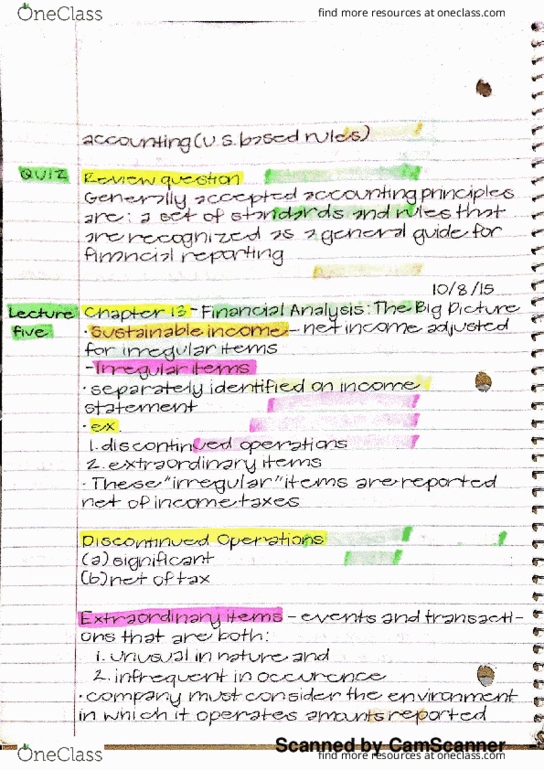 OneClass
find more resources at oneclass.com
accounting (U.S. based rules)
QUIZ Review question
Generally accepted accounting principles
are: a set of standards and rules that
are recognized as a general guide for
financial reporting
10/8/15
Lecture Chapter 13 - Financial Analysis: The Big Picture
five · Sustainable income - net income adjusted
for irregular items
- Irregular items
· separately identified on income
statement
· ex.
1. discontinued operations
2. extraordinary items
· These "irregular" items are reported
net of income taxes
Discontinued Operations
(a) significant
(b) net of tax
Extraordinary items - events and transacti-
ons that are both:
1. unusual in nature and
2. infrequent in occurence
· company must consider the environment
in which it operates amounts reported
Scanned by CamScanner
OneClass
find more resources at oneclass.com